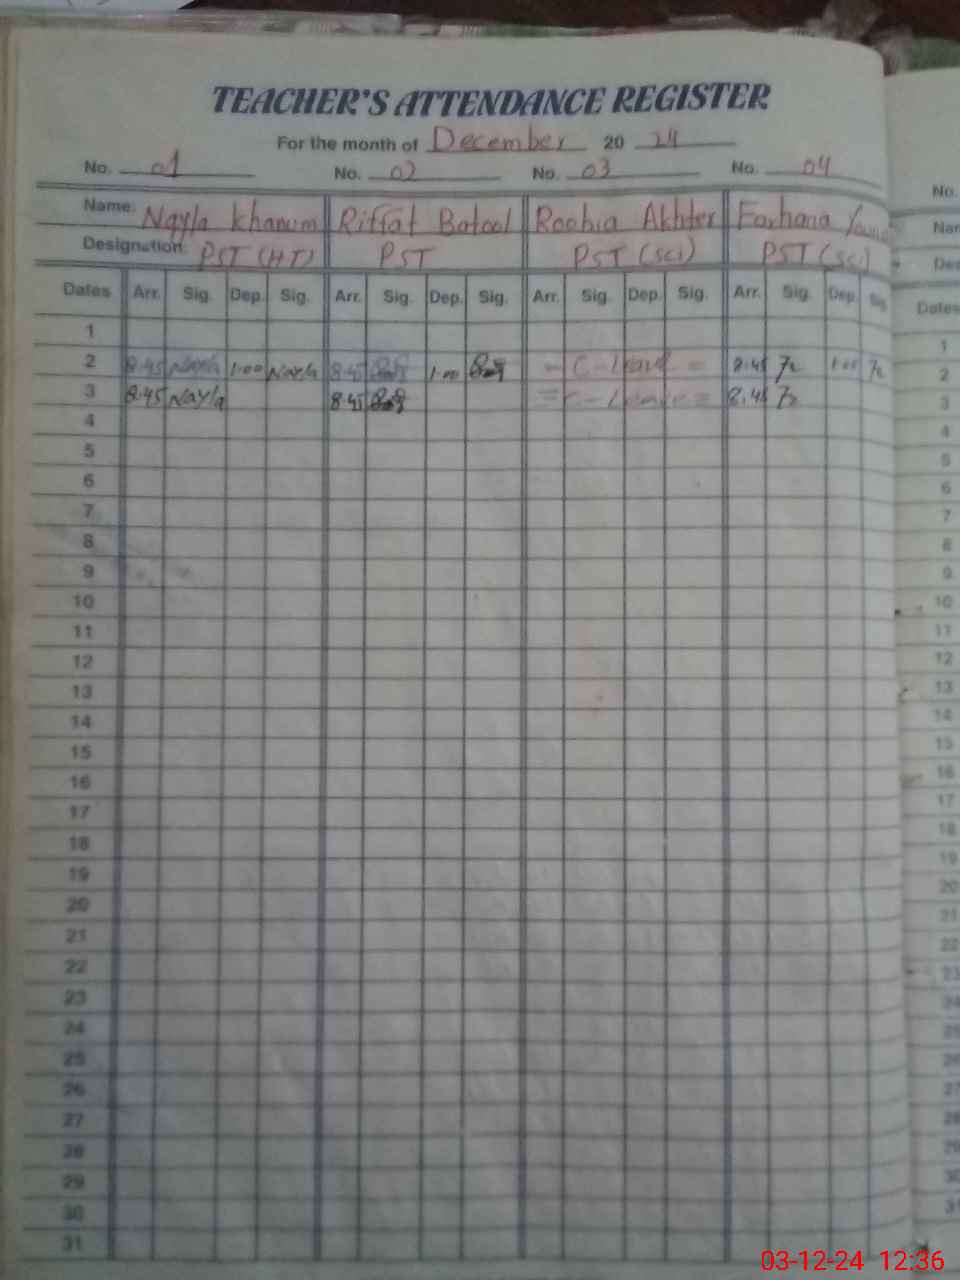 TEACHER'S ATTENDANCE REGISTER
For the month of December 2024
No. 01 No. 02 No. 03 No. 04 No.
Name: Nayla Khanum Riffat Batool Roobia Akhter Farhana
Designation: PST (HT) PST PST (SCI) PST (SCI)
Dates Arr. Sig. Dep. Sig. Arr. Sig. Dep. Sig. Arr. Sig. Dep. Sig. Arr. Sig. Dep. Sig Dates
1 1
2 8.45 Nayla 1.00 Nayla 8.45 1.00 - C-Leave = 8.45 1.00 2
3 8.45 Nayla 8.45 = C-Leave = 8.45 3
4 4
5 5
6 6
7 7
8 8
9 9
10 10
11 11
12 12
13 13
14 14
15 15
16 16
17 17
18 18
19 19
20 20
21 21
22 22
23 23
24 24
25 25
26 26
27 27
28 28
29 29
30 30
31 31
03-12-24 12:36